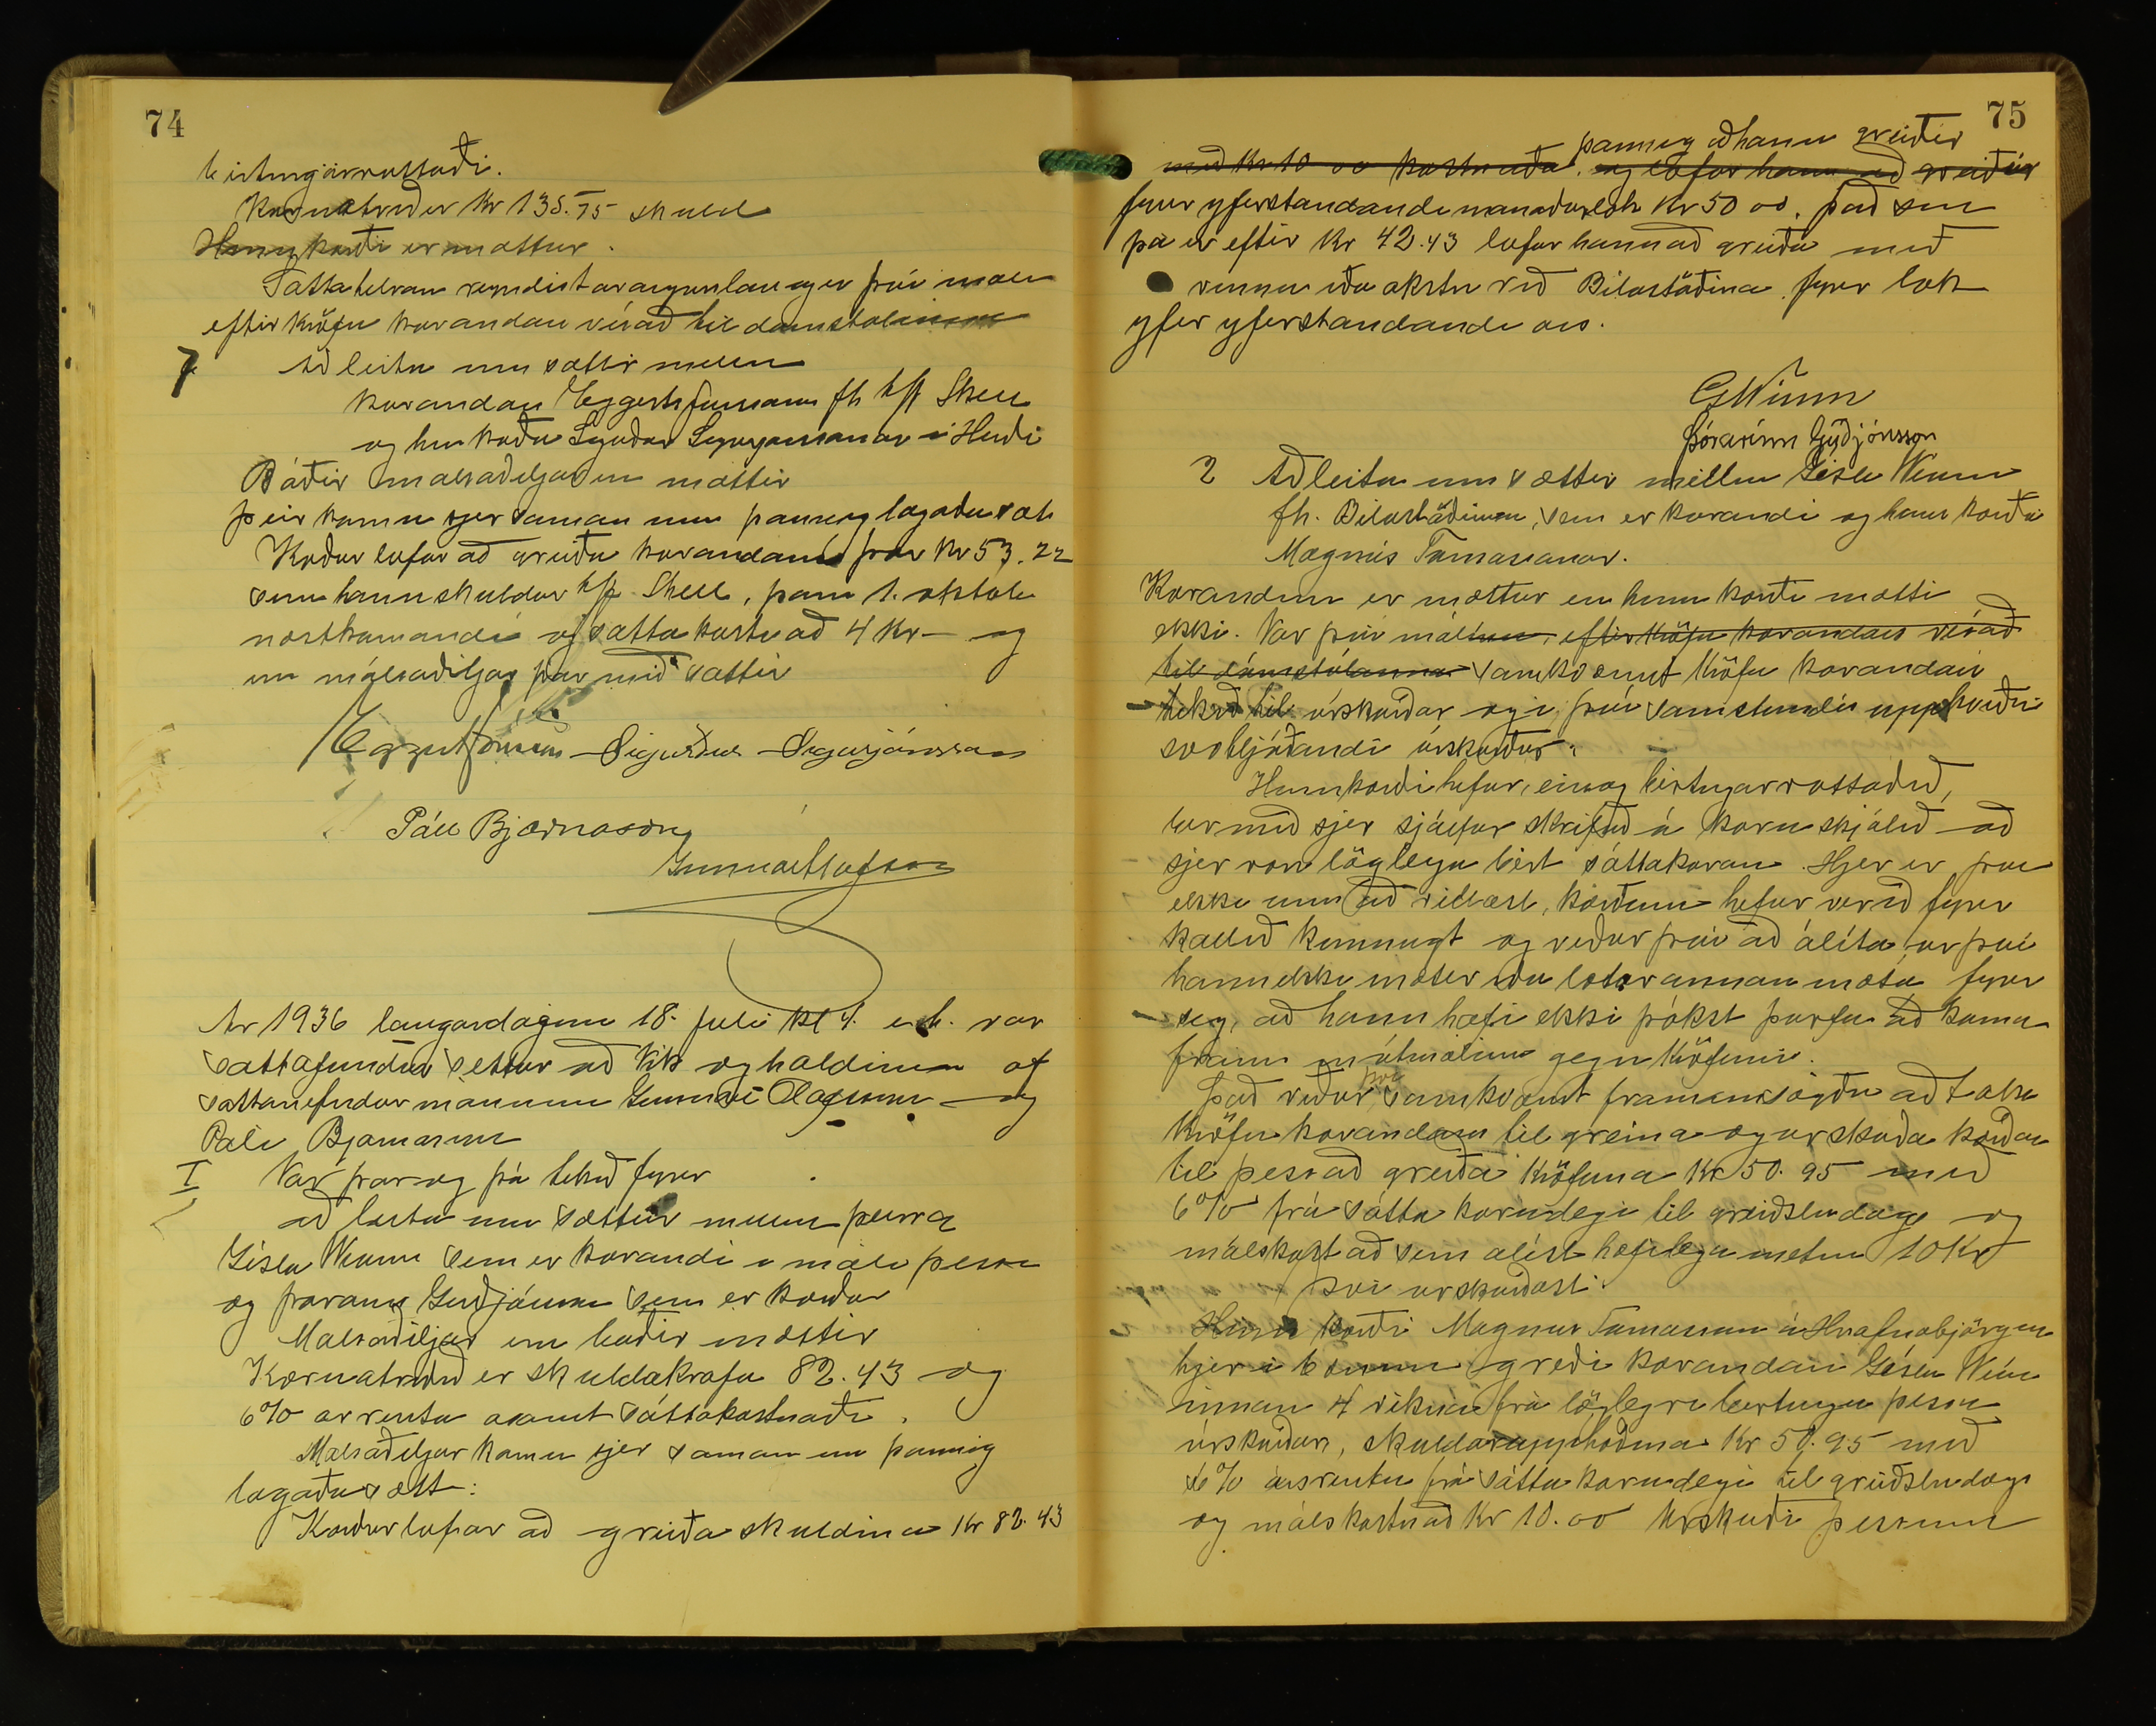 74
birtingarvottaði.
Kæruatriðið er Kr 135.75 skuld
Hinn kærði er mættur.
Sáttatilraun reyndist árangurslaus og er því máli
eftir kröfu kærandans vísað til dómstólanna
7 Að leita um sættir millum
kærandans Eggerts Jónssonar fh h/f Shell
og hins kærða Sigurðar Sigurjónssonar í Hruna
Báðir málsaðiljar eru mættir
Þeir komu sjer saman um þannig lagaða sátt
Kærður lofar að greiða kærandanum þær Kr 53.22
sem hann skuldar h/f Shell, þann 1. október
næstkomandi og sáttakostnað 4 Kr – og
eru málsaðiljar þar með sáttir
Eggert Jónsson Sigurður Sigurjónsson
Páll Bjarnason
Gunnar Ólafsson
Ár 1936 laugardaginn 18. júlí kl 4. e.h. var
sáttafundur settur að Vík og haldinn af
sáttanefndarmönnum Gunnari Ólafssyni og
Páli Bjarnasyni
I Var þar og þá tekið fyrir
að leita um sættir millum þeirra
Gísla Wíum sem er kærandi í máli þessu
og Þórarins Guðjónssonar sem er kærður
Málsaðiljar eru báðir mættir
Kæruatriðið er skuldakrafa 82.43 og
6% ársrenta ásamt sáttakostnaði.
Málsaðiljar komu sjer saman um þannig
lagaða sátt:
Kærður lofar að greiða skuldina Kr 82.43
75
þannig að hann greiðir
með Kr 10 00 kostnaða. og lofar hann að greiðir
fyrir yfirstandandi mánaðarlok Kr 50 00. Það sem
þá er eftir Kr 42.43 lofar hann að greiða með
vinnu eða akstri við Bilastöðina fyrir lok
yfir yfirstandandi árs.
G Wíum
Þórarinn Guðjónsson
2 Að leita um sættir millum Gísla Wíum
fh. Bilastöðinni, sem er kærandi og hins kærða
Magnús Tómassonar.
Kærandinn er mættur en hinn kærði mætti
ekki. Var því málinu, eftir kröfu kærandans vísað
til dómstólanna samkvæmt kröfu kærandans
tekið til úrskurðar og í því samstundis uppkveðinn
svohljóðandi úrskurður:
Hinn kærði hefur, eins og birtingarvottorðið,
ber með sjer sjálfur skrifað á kæruskjalið að
sjer væri löglega birt sáttakæran. Hjer er því
ekki um að villast, kærðum hefur verið fyrir
kallið kunnugt og verður því að álíta, úr því
hann ekki mætir eða lætur annan mæta fyrir
sig, að hann hafi ekki þókst þurfa að koma
fram mótmælum gegn kröfunni.
Það verður því samkvæmt framansögðu að taka
kröfu kærandans til greina og úrskurða kærðan
til þess að greiða kröfuna Kr 50.95 með
6% frá sáttakærudegi til greiðsludags og
málskostnað sem álíst hæfilega metinn 10 Kr
Því úrskurðast:
Hinn kærði Magnús Tómasson á Hrafnabjörgum
hjer í bænum greiði kærandanum Gísla Wíum
innan 4 vikna frá löglegri birtingu þessa
úrskurðar, skuldarupphæðina Kr 50.95 með
6% ársrentu frá sáttakærudegi til greiðsludags
og málskostnað Kr 10.00 Úrskurði þessum